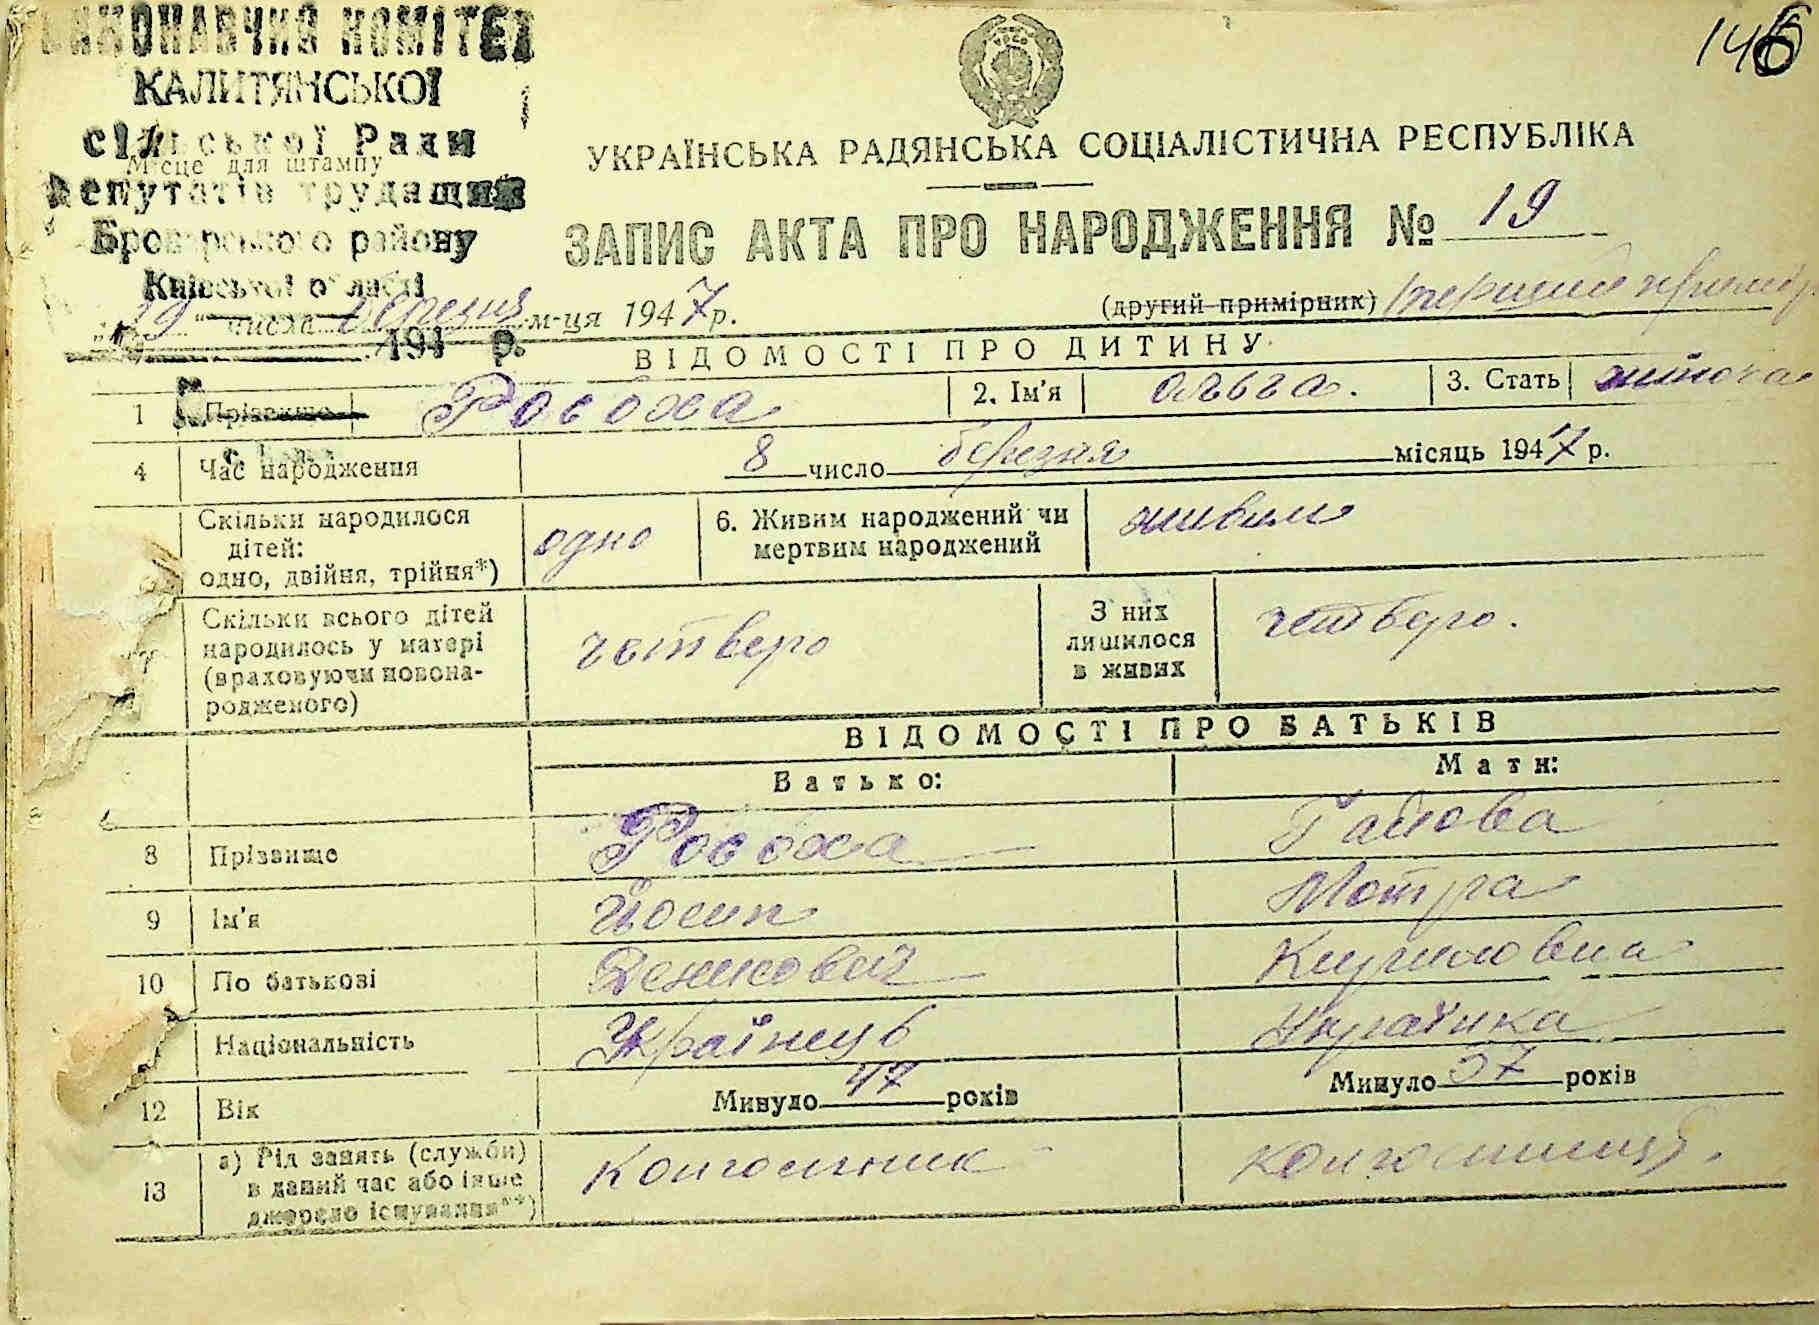 146
ВИКОНАВЧИЙ КОМІТЕТ
КАЛИТЯНСЬКОЇ
сільської Ради
Місце для штампу
депутатів трудящих
Броварського району
Київської області
УКРАЇНСЬКА РАДЯНСЬКА СОЦІАЛІСТИЧНА РЕСПУБЛІКА
ЗАПИС АКТА ПРО НАРОДЖЕННЯ № 19
„19“ числа березня м-ця 1947 р.
(другий примірник) перший примір.
194 р.
ВІДОМОСТІ ПРО ДИТИНУ
1 Прізвище Росоха 2. Ім'я Ольга. 3. Стать жіноча
4 Час народження 8 число березня місяць 1947 р.
Скільки народилося дітей: одно, двійня, трійня*) одно 6. Живим народжений чи мертвим народжений живим
Скільки всього дітей народилось у матері (враховуючи новонародженого) четверо З них лишилося в живих четверо.
ВІДОМОСТІ ПРО БАТЬКІВ
Батько: Мати:
8 Прізвище Росоха
9 Ім'я Йосип Мотря
10 По батькові Кириловна
Національність Українець Українка
12 Вік Минуло 47 років Минуло 37 років
13 а) Рід занять (служби) в даний час або інше джерело існування**) Колгоспник колгоспниця.